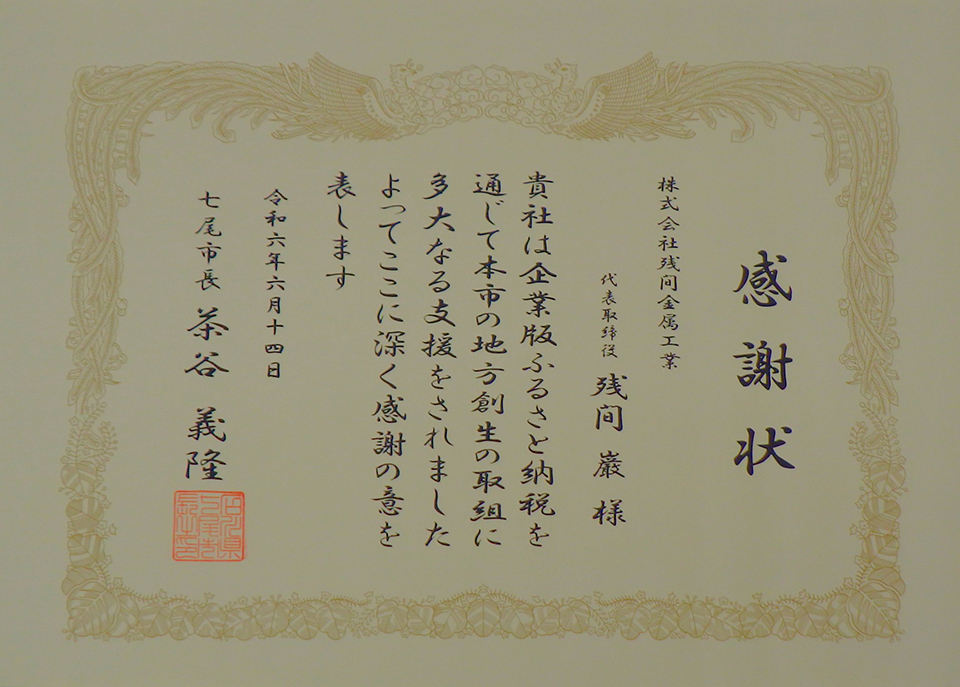 感謝状
株式会社残间金属工業
代表取締役 残间 巖 様
貴社は企業版ふるさと納税を
通じて本市の地方創生の取組に
多大なる支援をされました
よってここに深く感謝の意を
表します
令和六年六月十四日
七尾市長 茶谷 義隆